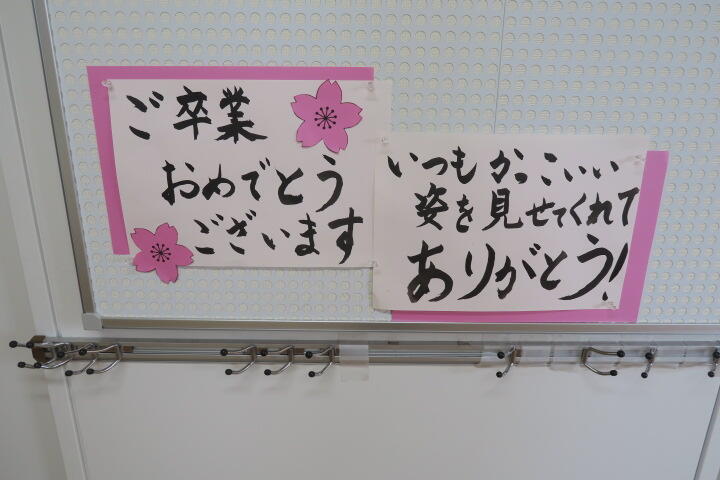 ご卒業
おめでとう
ございます
いつもかっこいい
姿を見せてくれて
ありがとう!